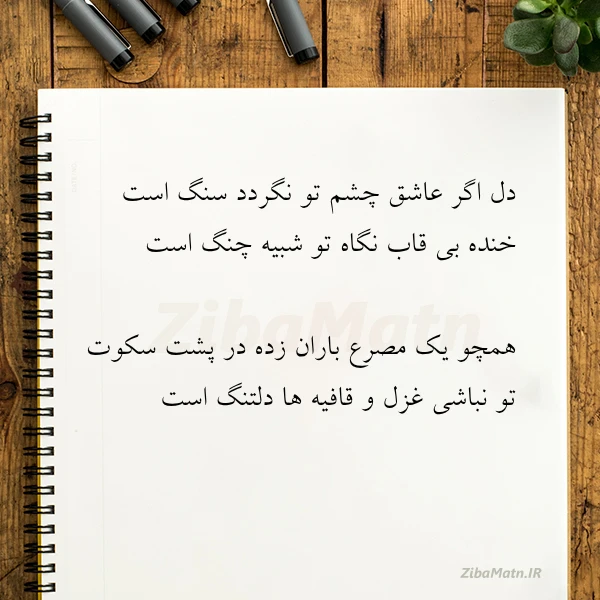 دل اگر عاشق چشم تو نگردد سنگ است
خنده بی قاب نگاه تو شبیه چنگ است
همچو یک مصرع باران زده در پشت سکوت
تو نباشی غزل و قافیه ها دلتنگ است
ZibaMatn
ZibaMatn.IR